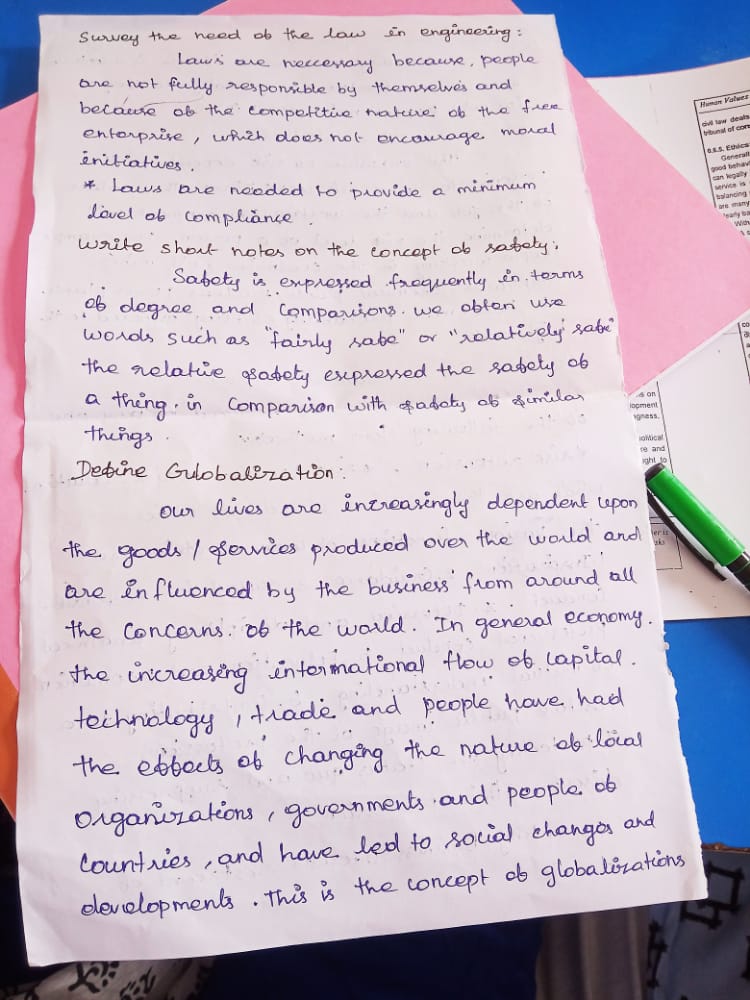 Survey the need of the law in engineering:
Laws are neccessary because, people
are not fully responsible by themselves and
because of the competitive nature of the free
enterprise, which does not encourage moral
initiatives.
* Laws are needed to provide a minimum
level of compliance.
Write short notes on the concept of safety.
Safety is expressed frequently in terms
of degree and comparisons. we often use
words such as "fairly safe" or "relatively safe"
the relative safety expressed the safety of
a thing. in comparison with safety of similar
things.
Define Gulobalization:
Our lives are increasingly dependent upon
the goods / services produced over the world and
are influenced by the business from around all
the concerns. of the world. In general economy.
the increasing international flow of capital.
technology, trade and people have had
the effects of changing the nature of local
organizations, governments and people of
countries, and have led to social changes and
developments. This is the concept of globalizations
Human Values
civil law deals
tribunal of con
6.5.5. Ethics
Generall
good behavi
can legally
service is
balancing
are many
With